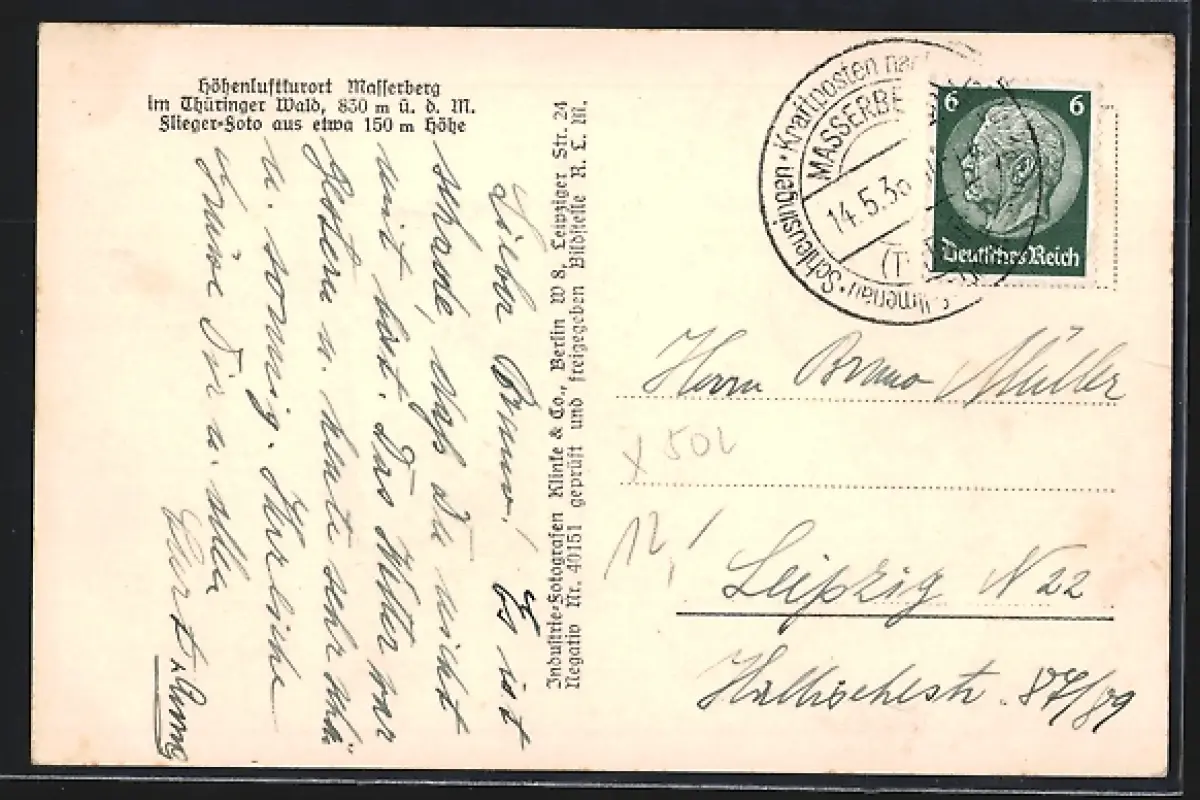 Höhenluftkurort Masserberg
im Thüringer Wald, 830 m ü. d. M.
Flieger-Foto aus etwa 150 m Höhe
Lieber Bruno! Es ist
schade, daß Du nicht
mit bist. Das Wetter war
gestern u. heute sehr
u. sonnig. Herzliche
Grüße Dir u. allen
Kurt
Industrie-Fotografen Klinke & Co., Berlin W 8, Leipziger Str. 24
Negativ Nr. 40151 geprüft und freigegeben Bildstelle R. L. M.
Schleusingen · Kraftposten nach Ilmenau ·
MASSERBE
14.5.3
(T
6 6
Deutsches Reich
Herrn Bruno Müller
X 50L
12,
Leipzig N 22
Hallischestr. 87/89